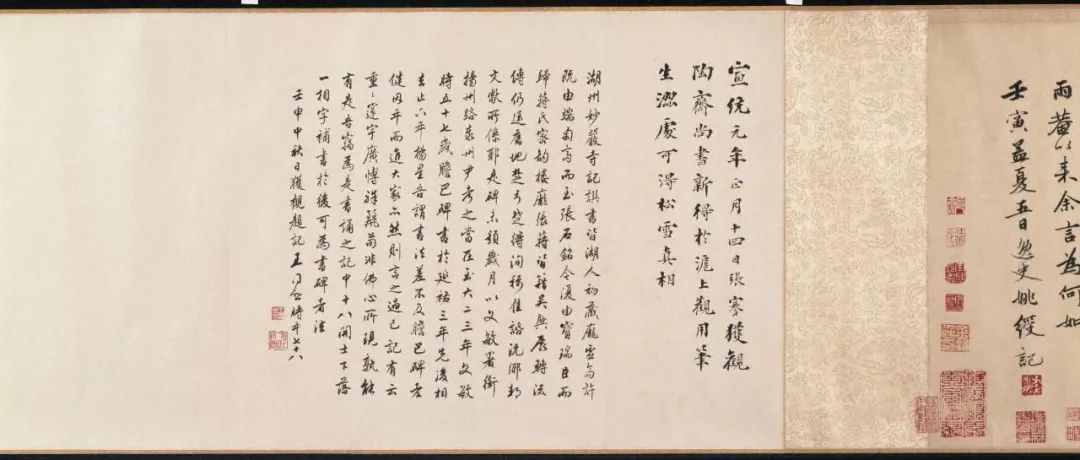 雨菴以来余言為何如
壬寅孟夏五日逸史姚綬記
宣统元年正月十四日張謇獲觀
陶齋尚書新得於滬上觀用筆
生澀處可得松雪真相
湖州妙嚴寺記譔書皆湖人初藏龐虛斋許
既由瑞匋斋而至張石銘今復由寶瑞臣而
歸蔣氏密韵楼龐張蔣皆籍吳興展轉流
傳仍還舊地楚弓楚得洵稱佳話況鄉邦
文獻所係耶是碑未領歲月以文敏署銜
揚州路泰州尹考之當在至大二三年文敏
時五十七歲膽巴碑書於延祐三年先後相
去止六年楊星吾謂書法差不及膽巴碑老
健因年而進大家亦然則言之過已記有云
重〻邃宇廣博祥麗苟非佛心所現孰能
有是吾竊為是書誦之記中十八開士下落
一相字補書於後可為書碑者法
壬申中秋日獲觀題記王同愈時年七十八